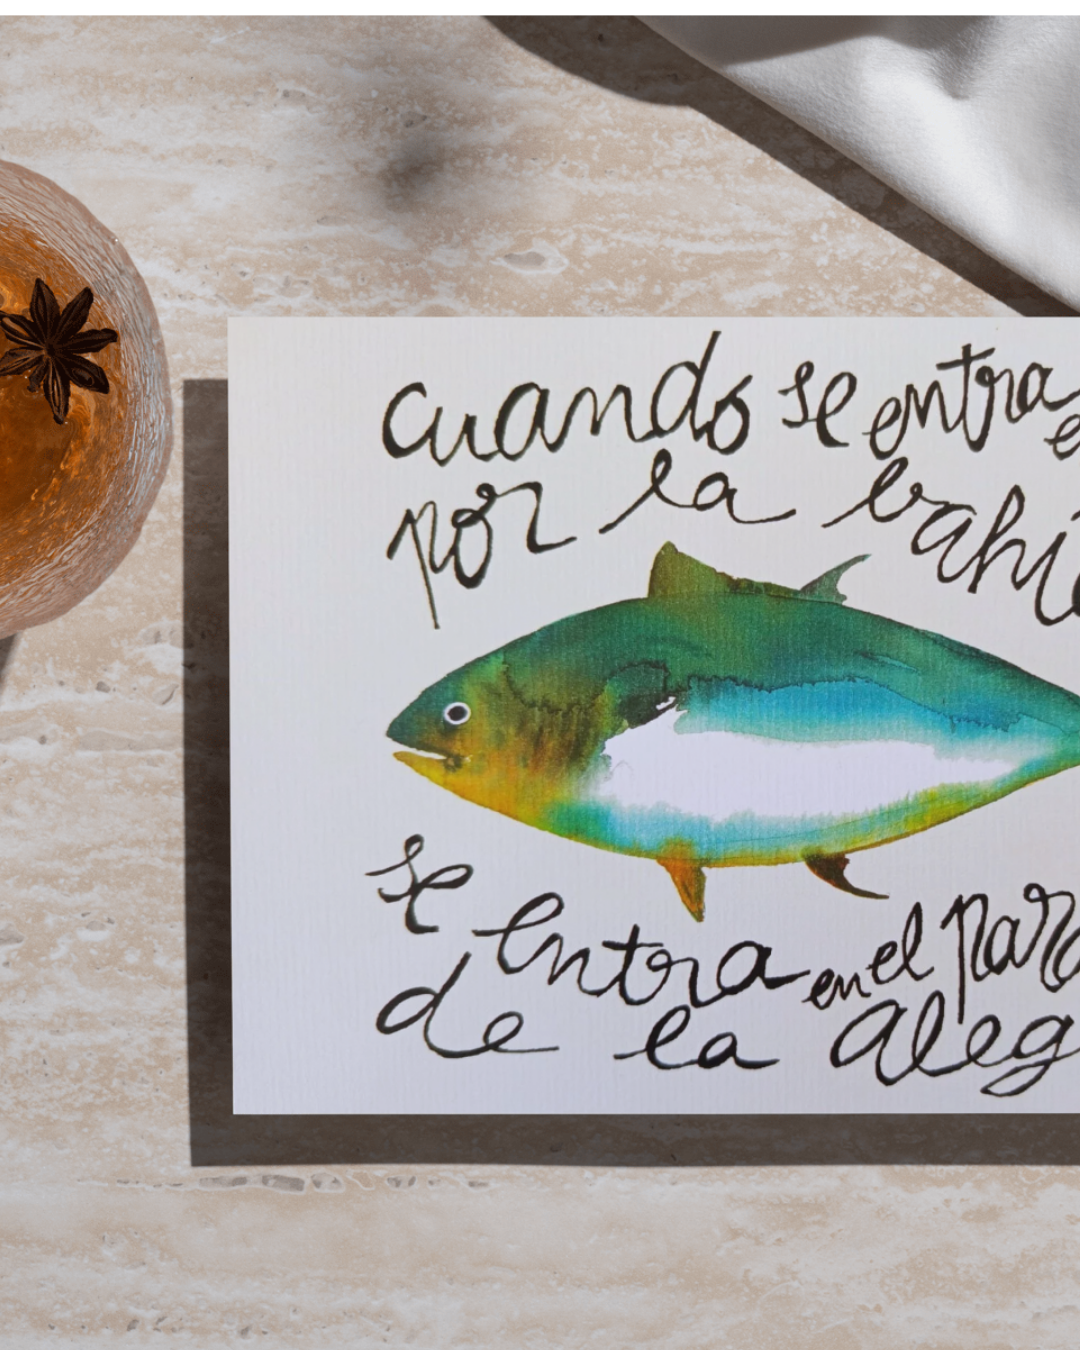 cuando se entra
por la bahía
se entra en el para
de la aleg